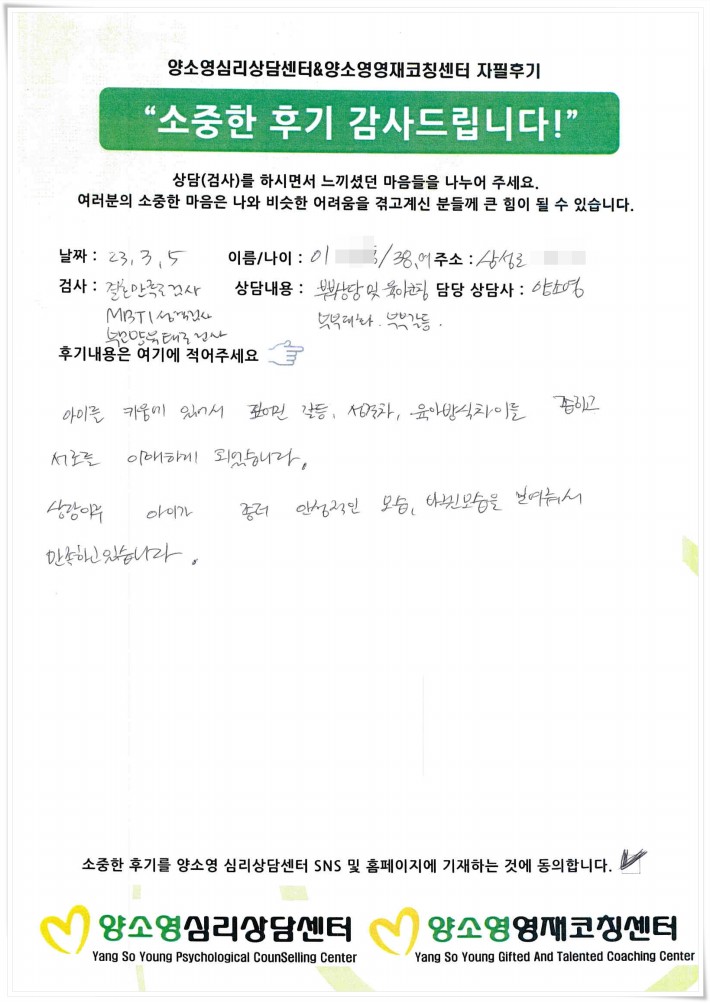 양소영심리상담센터&양소영영재코칭센터 자필후기
“소중한 후기 감사드립니다!”
상담(검사)를 하시면서 느끼셨던 마음들을 나누어 주세요.
여러분의 소중한 마음은 나와 비슷한 어려움을 겪고계신 분들께 큰 힘이 될 수 있습니다.
날짜 : 23, 3, 5 이름/나이 : 이 /38, 여 주소 : 삼성로
검사 : 결혼만족도검사 상담내용 : 부부상담 및 육아코칭 담당 상담사 : 양소영
MBTI 성격검사 부부대화. 부부갈등.
부모양육태도검사
후기내용은 여기에 적어주세요
아이를 키움에 있어서 갈등, 성격차, 육아방식차이를 좁히고
서로를 이해하게 되었습니다.
상담이후 아이가 좀더 안정적인 모습, 바뀐모습을 보여줘서
만족하고있습니다.
소중한 후기를 양소영 심리상담센터 SNS 및 홈페이지에 기재하는 것에 동의합니다.
양소영심리상담센터 양소영영재코칭센터
Yang So Young Psychological CounSelling Center Yang So Young Gifted And Talented Coaching Center